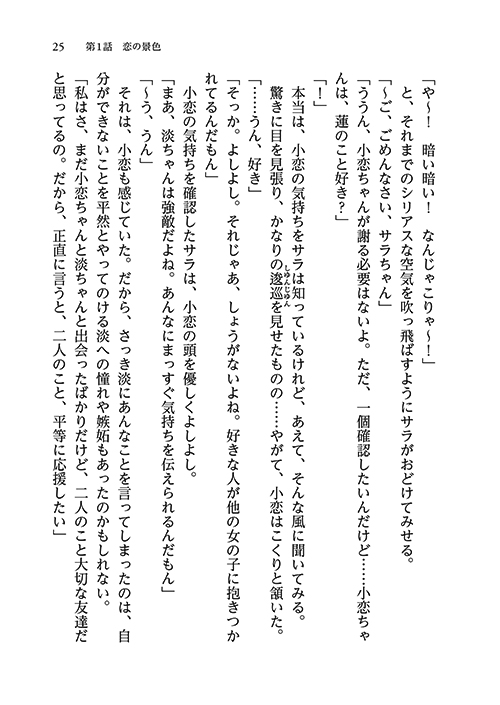 25　第1話　恋の景色
「や〜！　暗い暗い！　なんじゃこりゃ〜！」
と、それまでのシリアスな空気を吹っ飛ばすようにサラがおどけてみせる。
「〜ご、ごめんなさい、サラちゃん」
「ううん、小恋ちゃんが謝る必要はないよ。ただ、一個確認したいんだけど……小恋ちゃ
んは、蓮のこと好き？」
「！」
本当は、小恋の気持ちをサラは知っているけれど、あえて、そんな風に聞いてみる。
驚きに目を見張り、かなりの逡巡しゅんじゅんを見せたものの……やがて、小恋はこくりと頷いた。
「……うん、好き」
「そっか。よしよし。それじゃあ、しょうがないよね。好きな人が他の女の子に抱きつか
れてるんだもん」
小恋の気持ちを確認したサラは、小恋の頭を優しくよしよし。
「まあ、淡ちゃんは強敵だよね。あんなにまっすぐ気持ちを伝えられるんだもん」
「〜う、うん」
それは、小恋も感じていた。だから、さっき淡にあんなことを言ってしまったのは、自
分ができないことを平然とやってのける淡への憧れや嫉妬もあったのかもしれない。
「私はさ、まだ小恋ちゃんと淡ちゃんと出会ったばかりだけど、二人のこと大切な友達だ
と思ってるの。だから、正直に言うと、二人のこと、平等に応援したい」